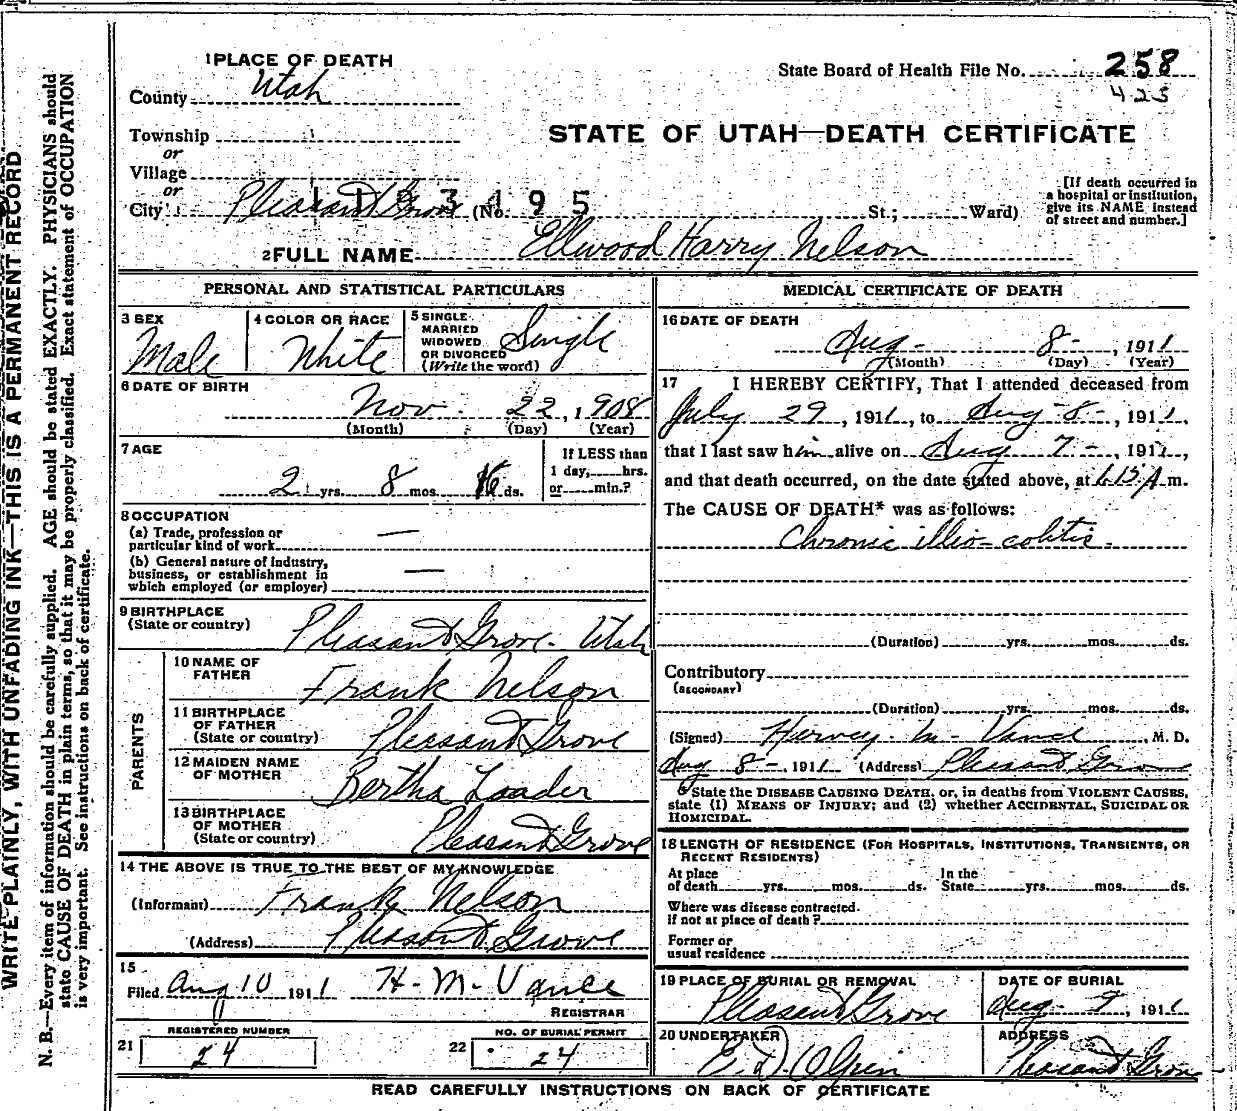 1 PLACE OF DEATH
County Utah
State Board of Health File No. 258
423
Township
or
Village
or
City Pleasant Grove (No. St.; Ward)
STATE OF UTAH—DEATH CERTIFICATE
[If death occurred in a hospital or institution, give its NAME instead of street and number.]
2 FULL NAME Ellwood Harry Nelson
PERSONAL AND STATISTICAL PARTICULARS
3 SEX
Male
4 COLOR OR RACE
White
5 SINGLE
MARRIED
WIDOWED
OR DIVORCED
(Write the word)
Single
6 DATE OF BIRTH
Nov. 22, 1908
(Month) (Day) (Year)
7 AGE
2 yrs. 8 mos. 16 ds.
If LESS than
1 day, hrs.
or min.?
8 OCCUPATION
(a) Trade, profession or
particular kind of work —
(b) General nature of industry,
business, or establishment in
which employed (or employer) —
9 BIRTHPLACE
(State or country)
Pleasant Grove. Utah
PARENTS
10 NAME OF
FATHER
Frank Nelson
11 BIRTHPLACE
OF FATHER
(State or country)
Pleasant Grove
12 MAIDEN NAME
OF MOTHER
Bertha Loader
13 BIRTHPLACE
OF MOTHER
(State or country)
Pleasant Grove
14 THE ABOVE IS TRUE TO THE BEST OF MY KNOWLEDGE
(Informant) Frank Nelson
(Address) Pleasant Grove
15
Filed Aug 10 1911 H. M. Vance
REGISTRAR
REGISTERED NUMBER
21 24
NO. OF BURIAL PERMIT
22 24
MEDICAL CERTIFICATE OF DEATH
16 DATE OF DEATH
Aug - 8 - , 1911
(Month) (Day) (Year)
17 I HEREBY CERTIFY, That I attended deceased from
July 29, 1911, to Aug-8-, 1911,
that I last saw him alive on Aug 7-, 1911,
and that death occurred, on the date stated above, at 6.15 A m.
The CAUSE OF DEATH* was as follows:
Chronic illio-colitis.
(Duration) yrs. mos. ds.
Contributory
(SECONDARY)
(Duration) yrs. mos. ds.
(Signed) Hervey. M. Vance, M. D.
Aug 8-, 1911 (Address) Pleasant Grove
* State the DISEASE CAUSING DEATH. or, in deaths from VIOLENT CAUSES,
state (1) MEANS OF INJURY; and (2) whether ACCIDENTAL, SUICIDAL OR
HOMICIDAL.
18 LENGTH OF RESIDENCE (FOR HOSPITALS, INSTITUTIONS, TRANSIENTS, OR
RECENT RESIDENTS)
At place
of death yrs. mos. ds.
In the
State yrs. mos. ds.
Where was disease contracted.
if not at place of death?
Former or
usual residence
19 PLACE OF BURIAL OR REMOVAL
Pleasant Grove
DATE OF BURIAL
Aug - 9, 1911
20 UNDERTAKER
E. D. Olpin
ADDRESS
Pleasant Grove
READ CAREFULLY INSTRUCTIONS ON BACK OF CERTIFICATE
WRITE PLAINLY, WITH UNFADING INK—THIS IS A PERMANENT RECORD
N. B.—Every item of information should be carefully supplied. AGE should be stated EXACTLY. PHYSICIANS should
state CAUSE OF DEATH in plain terms, so that it may be properly classified. Exact statement of OCCUPATION
is very important. See instructions on back of certificate.